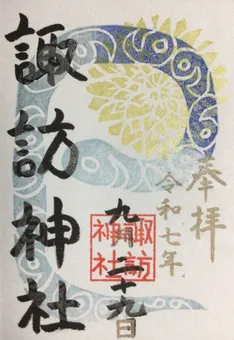 奉拝
令和七年
九月二十九日
諏訪神社
諏訪
神社